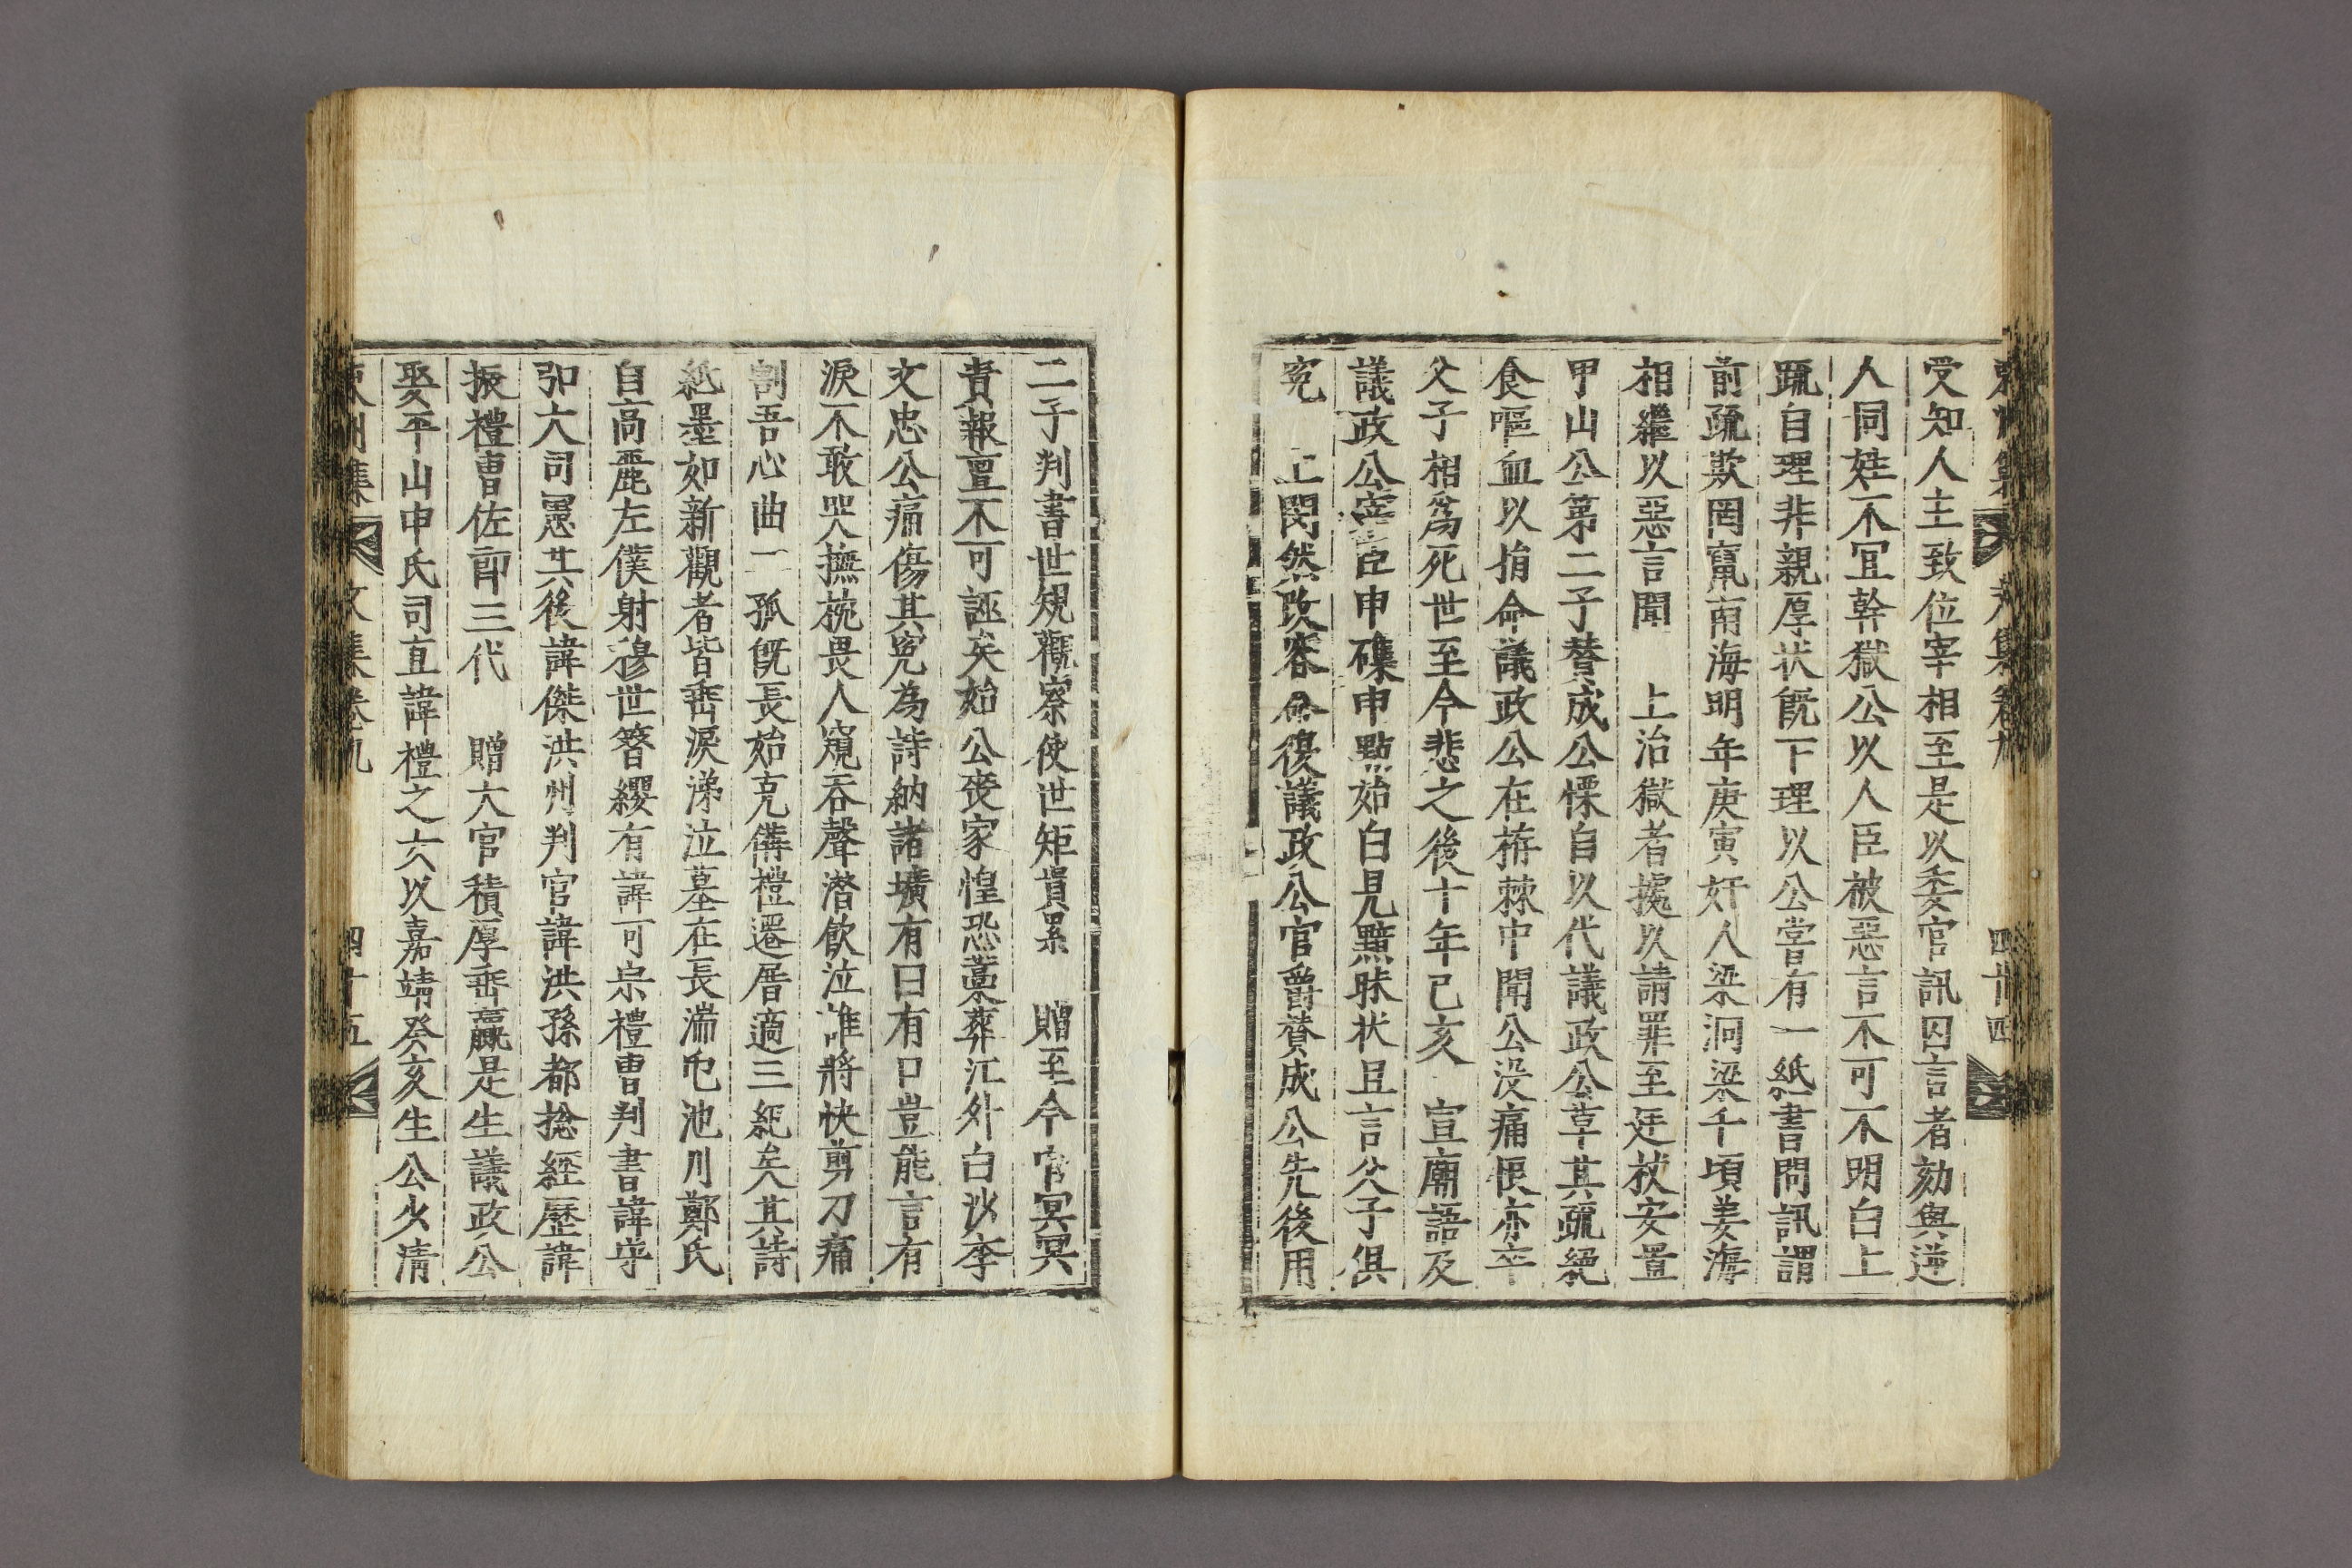 東州集 文集卷九 四十四
受知人主致位宰相至是以委官訊囚言者劾與逆
人同姓不宜幹獄公以人臣被惡言不可不明白上
疏自理非親厚状旣下理以公嘗有一紙書問訊謂
前疏欺罔竄南海明年庚寅奸人梁泂梁千頃姜海
相繼以惡言聞 上治獄者據以請罪至廷杖安置
甲山公第二子贊成公慄自以代議政公草其疏絕
食嘔血以捐命議政公在栫棘中聞公没痛恨亦卒
父子相爲死世至今悲之後十年己亥 宣廟語及
議政公宰臣申磼申點始白見黯昧状且言父子俱
寃 上閔然改容命復議政公官爵贊成公先後用
二子判書世規觀察使世矩貴累 贈至今官冥冥
責報亶不可誣矣始公喪家惶恐藁葬江外白沙李
文忠公痛傷其寃為詩納諸壙有曰有口豈能言有
淚不敢哭撫椀畏人窺吞聲潜飮泣誰將快剪刀痛
割吾心曲一孤旣長始克備禮遷厝適三紀矣其詩
紙墨如新觀者皆垂淚涕泣墓在長湍皀池川鄭氏
自高麗左僕射穆世簪纓有諱可宗禮曹判書諱守
弘大司憲其後諱傑洪州判官諱洪孫都捴經歷諱
振禮曹佐郎三代 贈大官積厚垂贏是生議政公
娶平山申氏司直諱禮之女以嘉靖癸亥生公少清
東州集 文集卷九 四十五